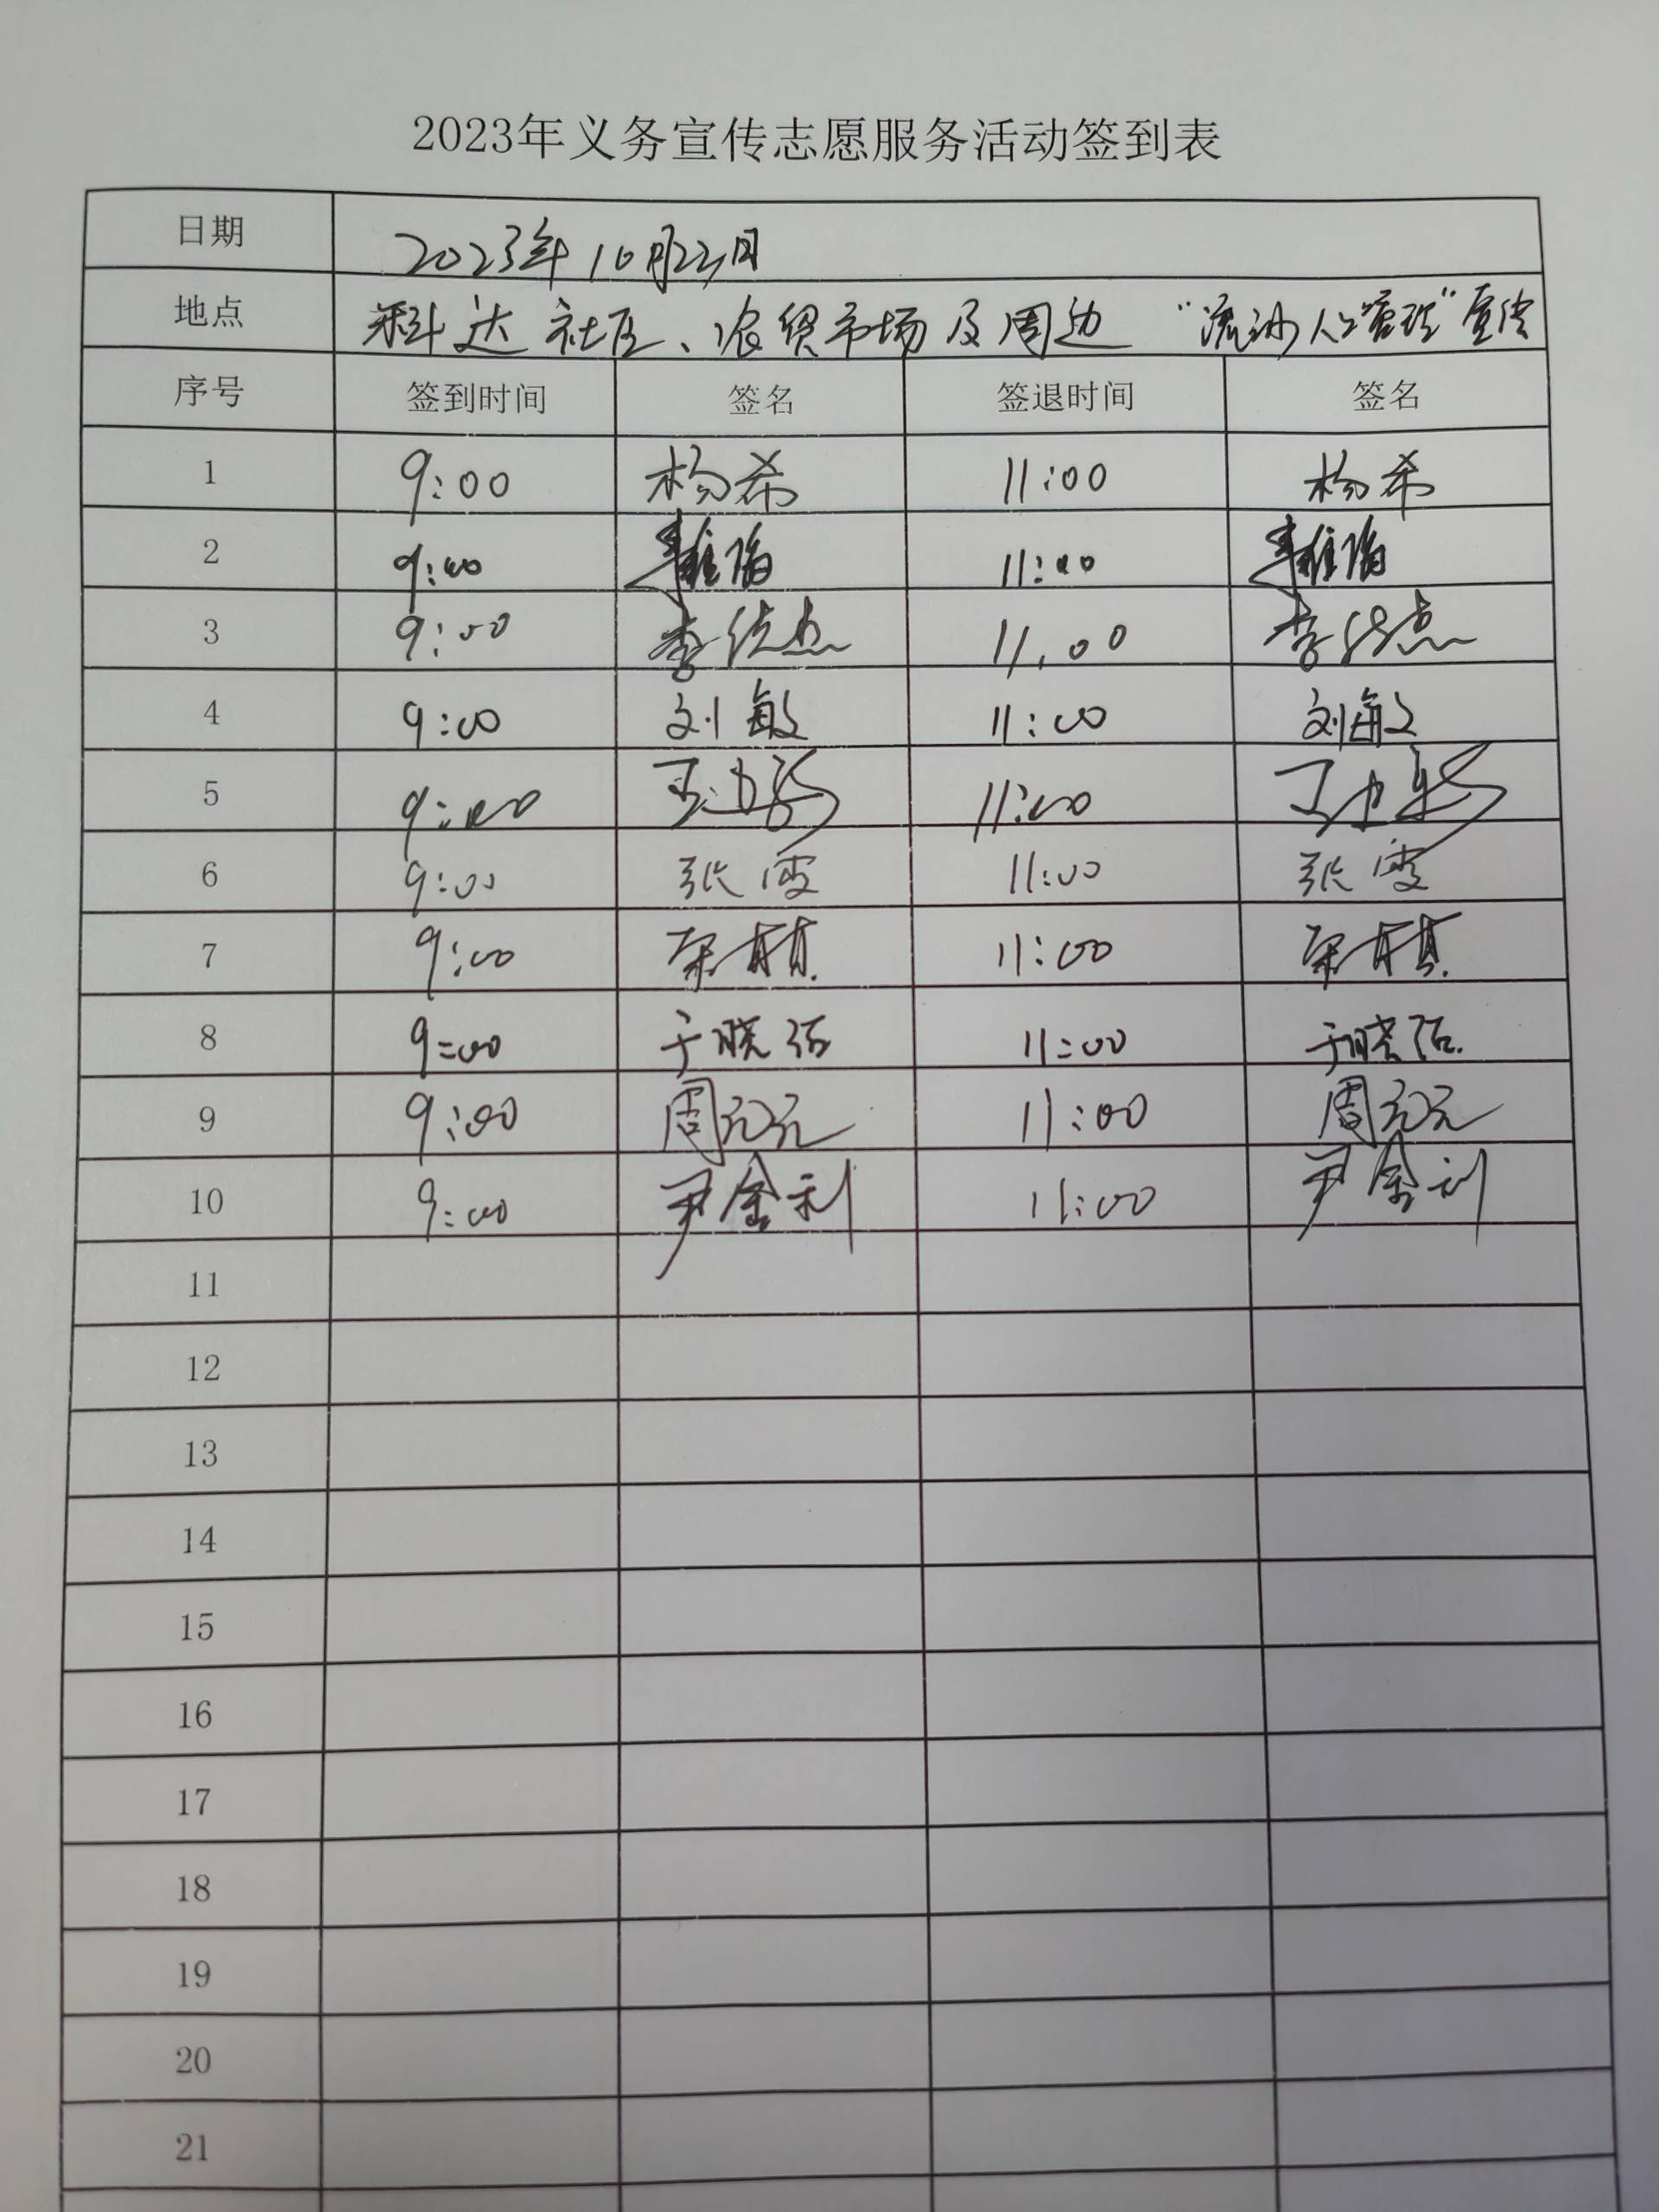 2023年义务宣传志愿服务活动签到表
日期 2023年10月22日
地点 科达社区、农贸市场及周边 “流动人口管理”宣传
序号 签到时间 签名 签退时间 签名
1 9:00 杨希 11:00 杨希
2 9:00 11:00
3 9:00 李 11:00 李
4 9:00 刘敏 11:00 刘敏
5 9:00 11:00
6 9:00 张雯 11:00 张雯
7 9:00 11:00
8 9:00 于晓 11:00 于晓
9 9:00 周元元 11:00 周元元
10 9:00 尹金利 11:00 尹金利
11
12
13
14
15
16
17
18
19
20
21